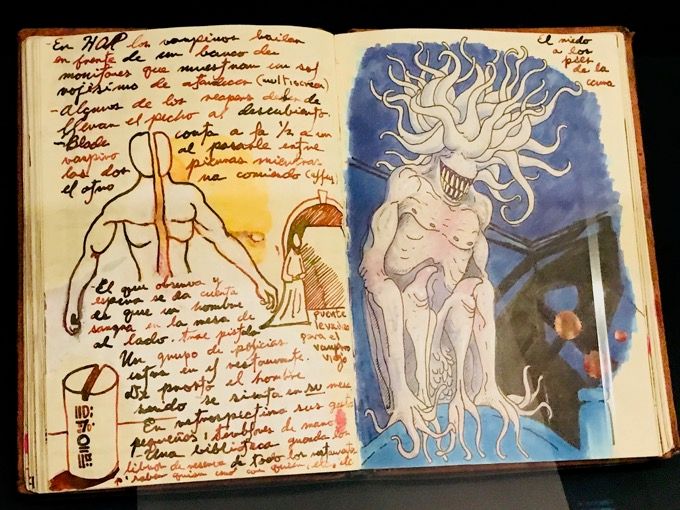 -En HOP los vampiros bailan
en frente de un banco de
monitores que muestran un sol
rojísimo de atardecer (multiscreen)
-Algunos de los reapers deben de
llevan el pecho al descubierto
-Blade corta a la 1/2 a un
vampiro al pasarle entre
las dos piernas mientras
el otro va corriendo
-El que observa y
espera se da cuenta
es que un hombre
sangra en la mesa de
al lado. trae pistola
Un grupo de policías
entra en el restaurante.
De pronto el hombre
se sienta en SU mesa
En retrospectiva sus gestos
pequeños, temblores de mano
Una biblioteca guarda los
libros de reserva de todos los restaurantes
saber quien comió con quien, etc, etc
puente
levadizo
para el
vampiro
viejo
El miedo
a los
pies
de la
cama